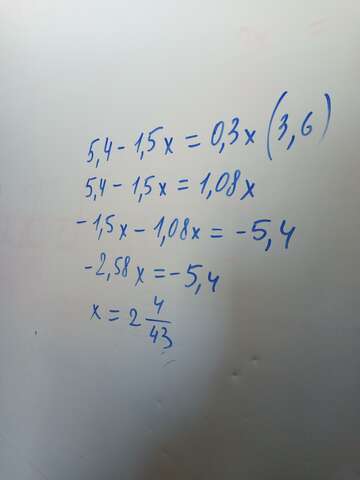 5,4 - 1,5x = 0,3x (3,6)
5,4 - 1,5x = 1,08x
-1,5x - 1,08x = -5,4
-2,58x = -5,4
x = 2 4/43